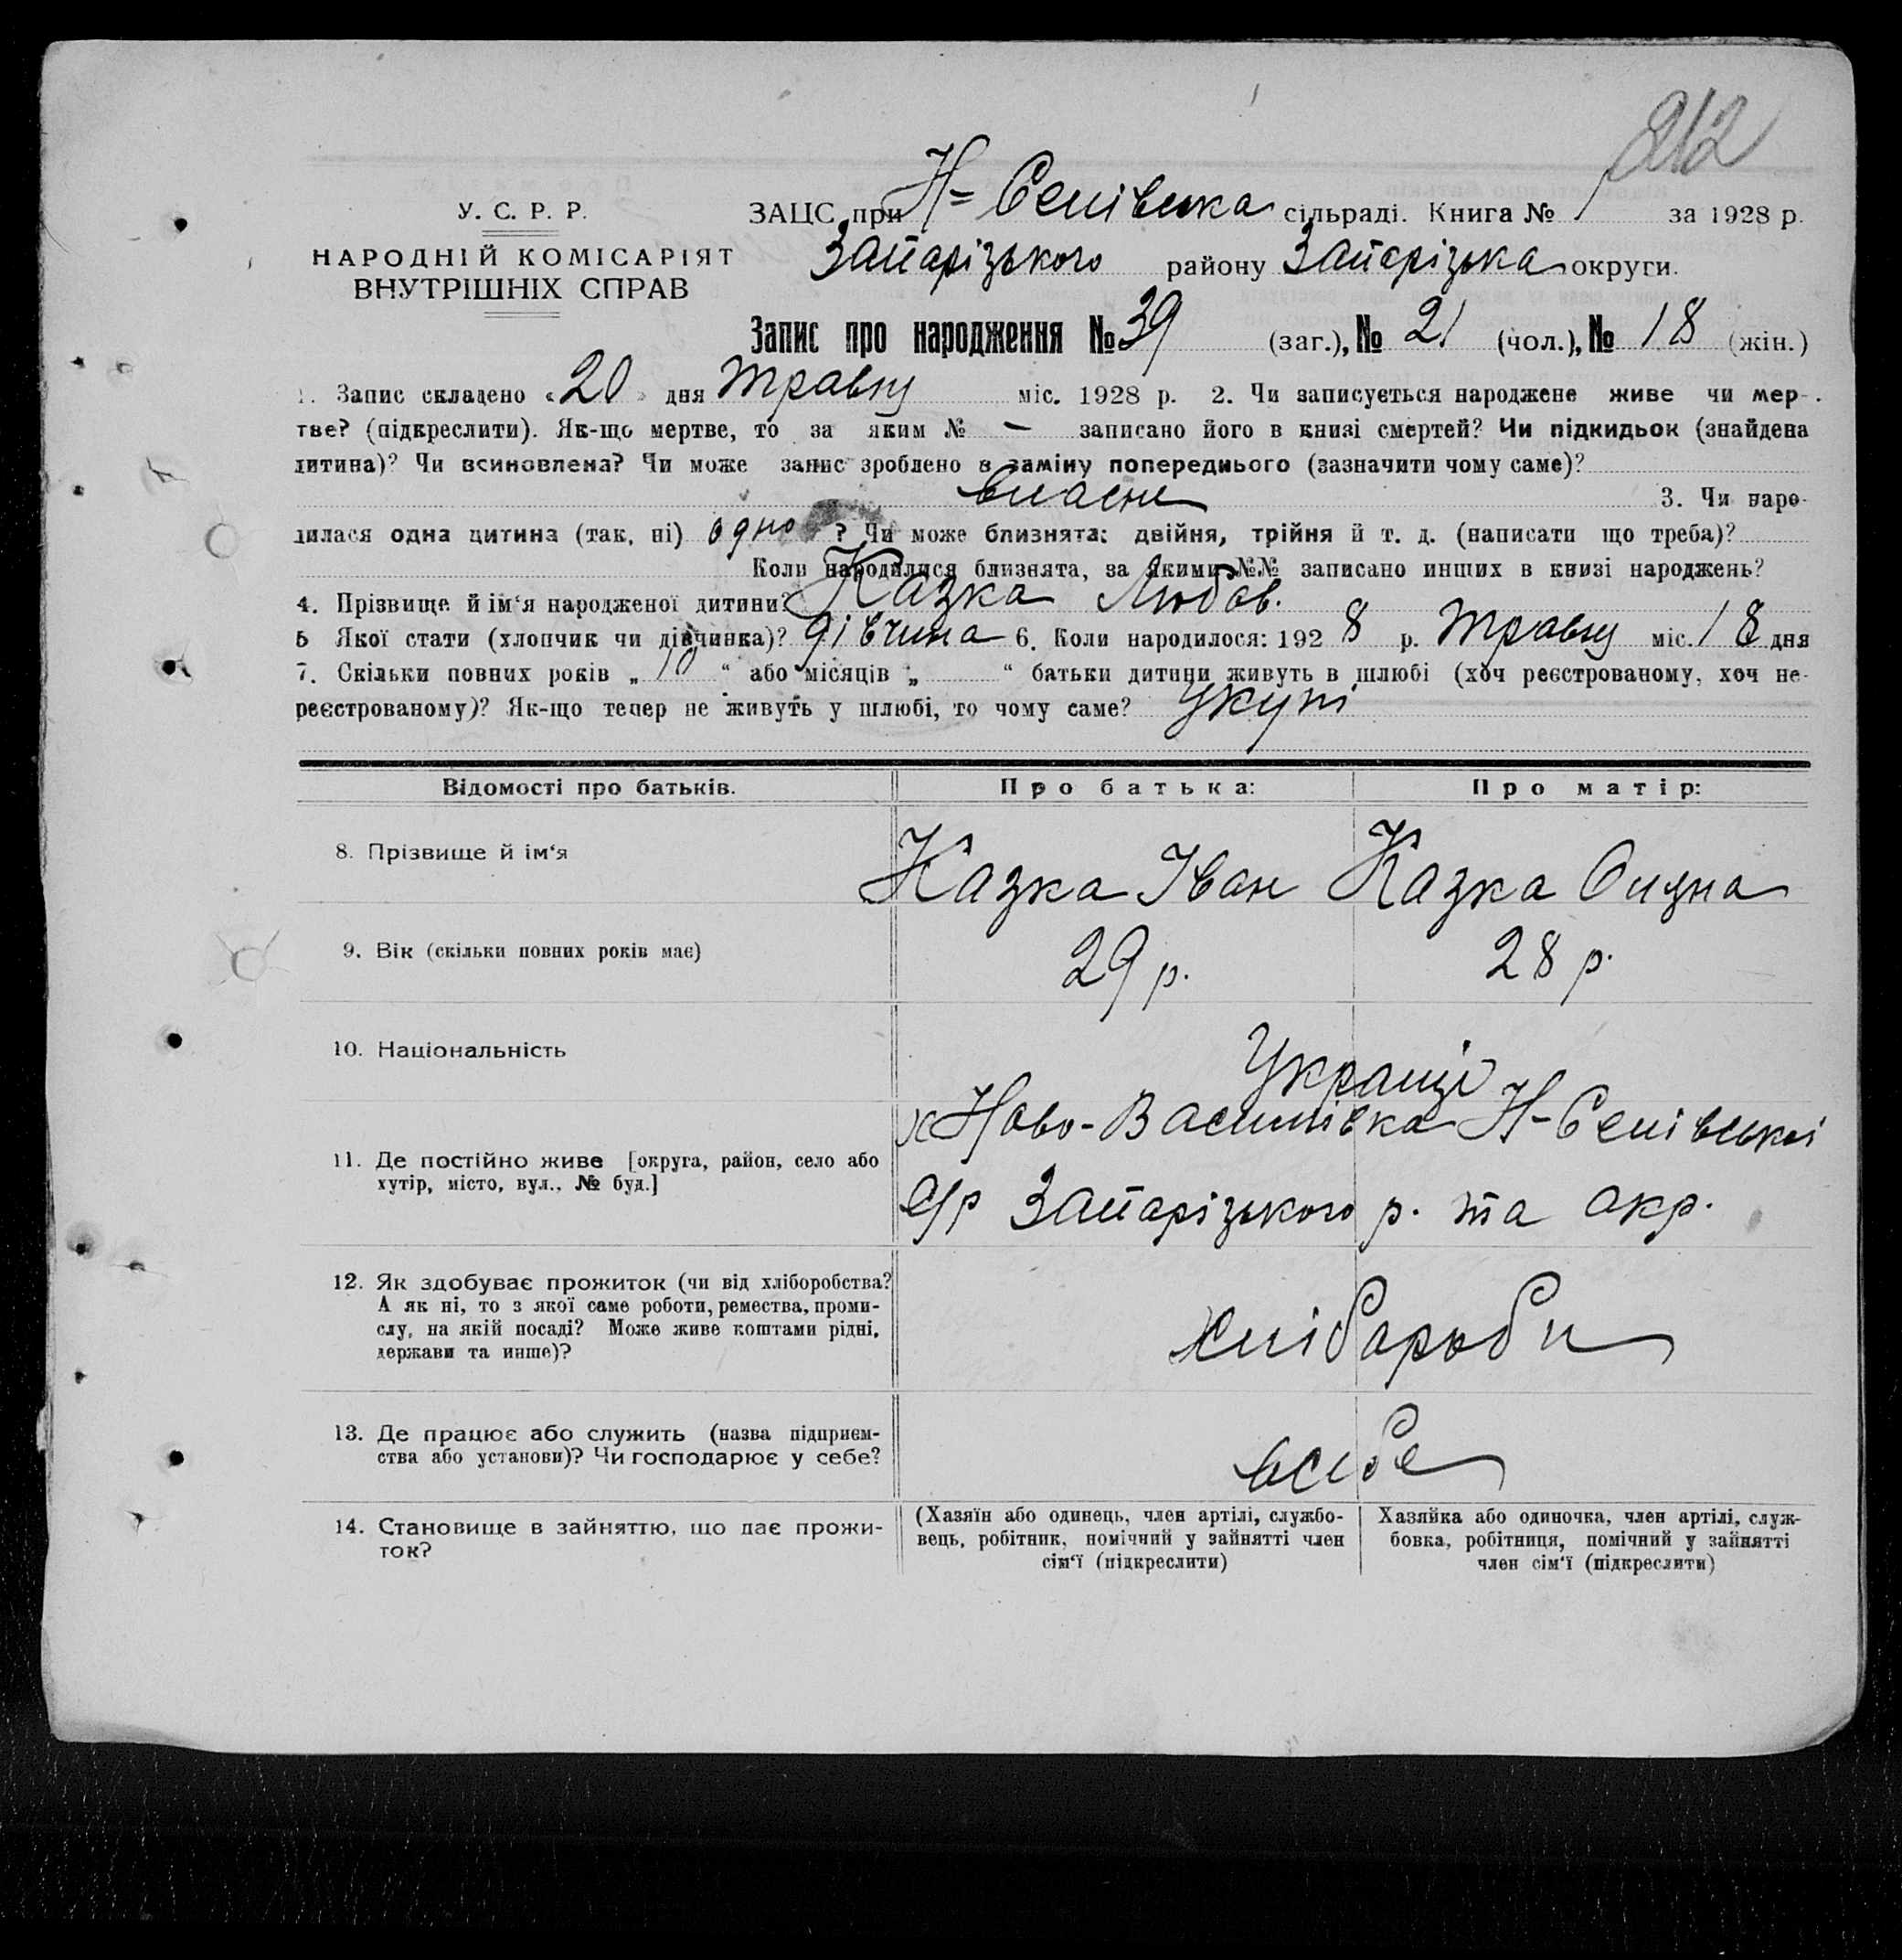 212
У. С. Р. Р.
НАРОДНІЙ КОМІСАРІЯТ
ВНУТРІШНІХ СПРАВ
ЗАЦС при Н= Селівська сільраді. Книга № 1 за 1928 р.
Запарізького району Запарізька округи.
Запис про народження № 39 (заг.), № 21 (чол.), № 18 (жін.)
1. Запис складено «20» дня травня міс. 1928 р. 2. Чи записується народжене живе чи мер-
тве? (підкреслити). Як-що мертве, то за яким № – записано його в книзі смертей? Чи підкидьок (знайдена
дитина)? Чи всиновлена? Чи може запис зроблено в заміну попереднього (зазначити чому саме)?
власне 3. Чи наро-
дилася одна дитина (так, ні) одно ? Чи може близнята: двійня, трійня й т. д. (написати що треба)?
Коли народилися близнята, за якими №№ записано инших в книзі народжень?
4. Прізвище й ім‘я народженої дитини? Казка Любов.
5 Якої стати (хлопчик чи дівчинка)? дівчина 6. Коли народилося: 1928 р. травня міс. 18 дня
7. Скільки повних років „ 10 “ або місяців „ “ батьки дитини живуть в шлюбі (хоч реєстрованому, хоч не-
реєстрованому)? Як-що тепер не живуть у шлюбі, то чому саме? укупі
Відомості про батьків. Про батька: Про матір:
8. Прізвище й ім‘я Казка Іван Казка
9. Вік (скільки повних років має) 29 р. 28 р.
10. Національність Українці
х Ново-Василівка Н-Селівської
11. Де постійно живе [округа, район, село або
хутір, місто, вул., № буд.]
с/р Запарізького р. та окр.
12. Як здобуває прожиток (чи від хліборобства?
А як ні, то з якої саме роботи, ремества, проми-
слу, на якій посаді? Може живе коштами рідні,
держави та инше)?
хлібароби
13. Де працює або служить (назва підприєм-
ства або установи)? Чи господарює у себе?
всебе
14. Становище в зайняттю, що дає прожи-
ток?
(Хазяїн або одинець, член артілі, службо-
вець, робітник, помічний у зайнятті член
сім‘ї (підкреслити)
Хазяйка або одиночка, член артілі, служ-
бовка, робітниця, помічний у зайнятті
член сім‘ї (підкреслити)